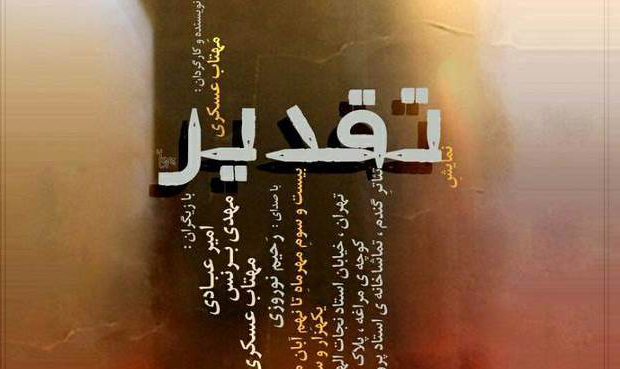 نمایش
تقدیر
نویسنده و کارگردان :
مهتاب عسکری
با زیگران :
امیر عبادی
مهدی برنس
مهتاب عسکری
با صدای : رحیم نوروزی
بیست و سوم مهرماه تا نهم آبان
یکهزار و
تهران ، خیابان استاد نجات
کوچه ی مراغه ، پلاک
تئاتر گندم ، تماشاخانه ی استاد